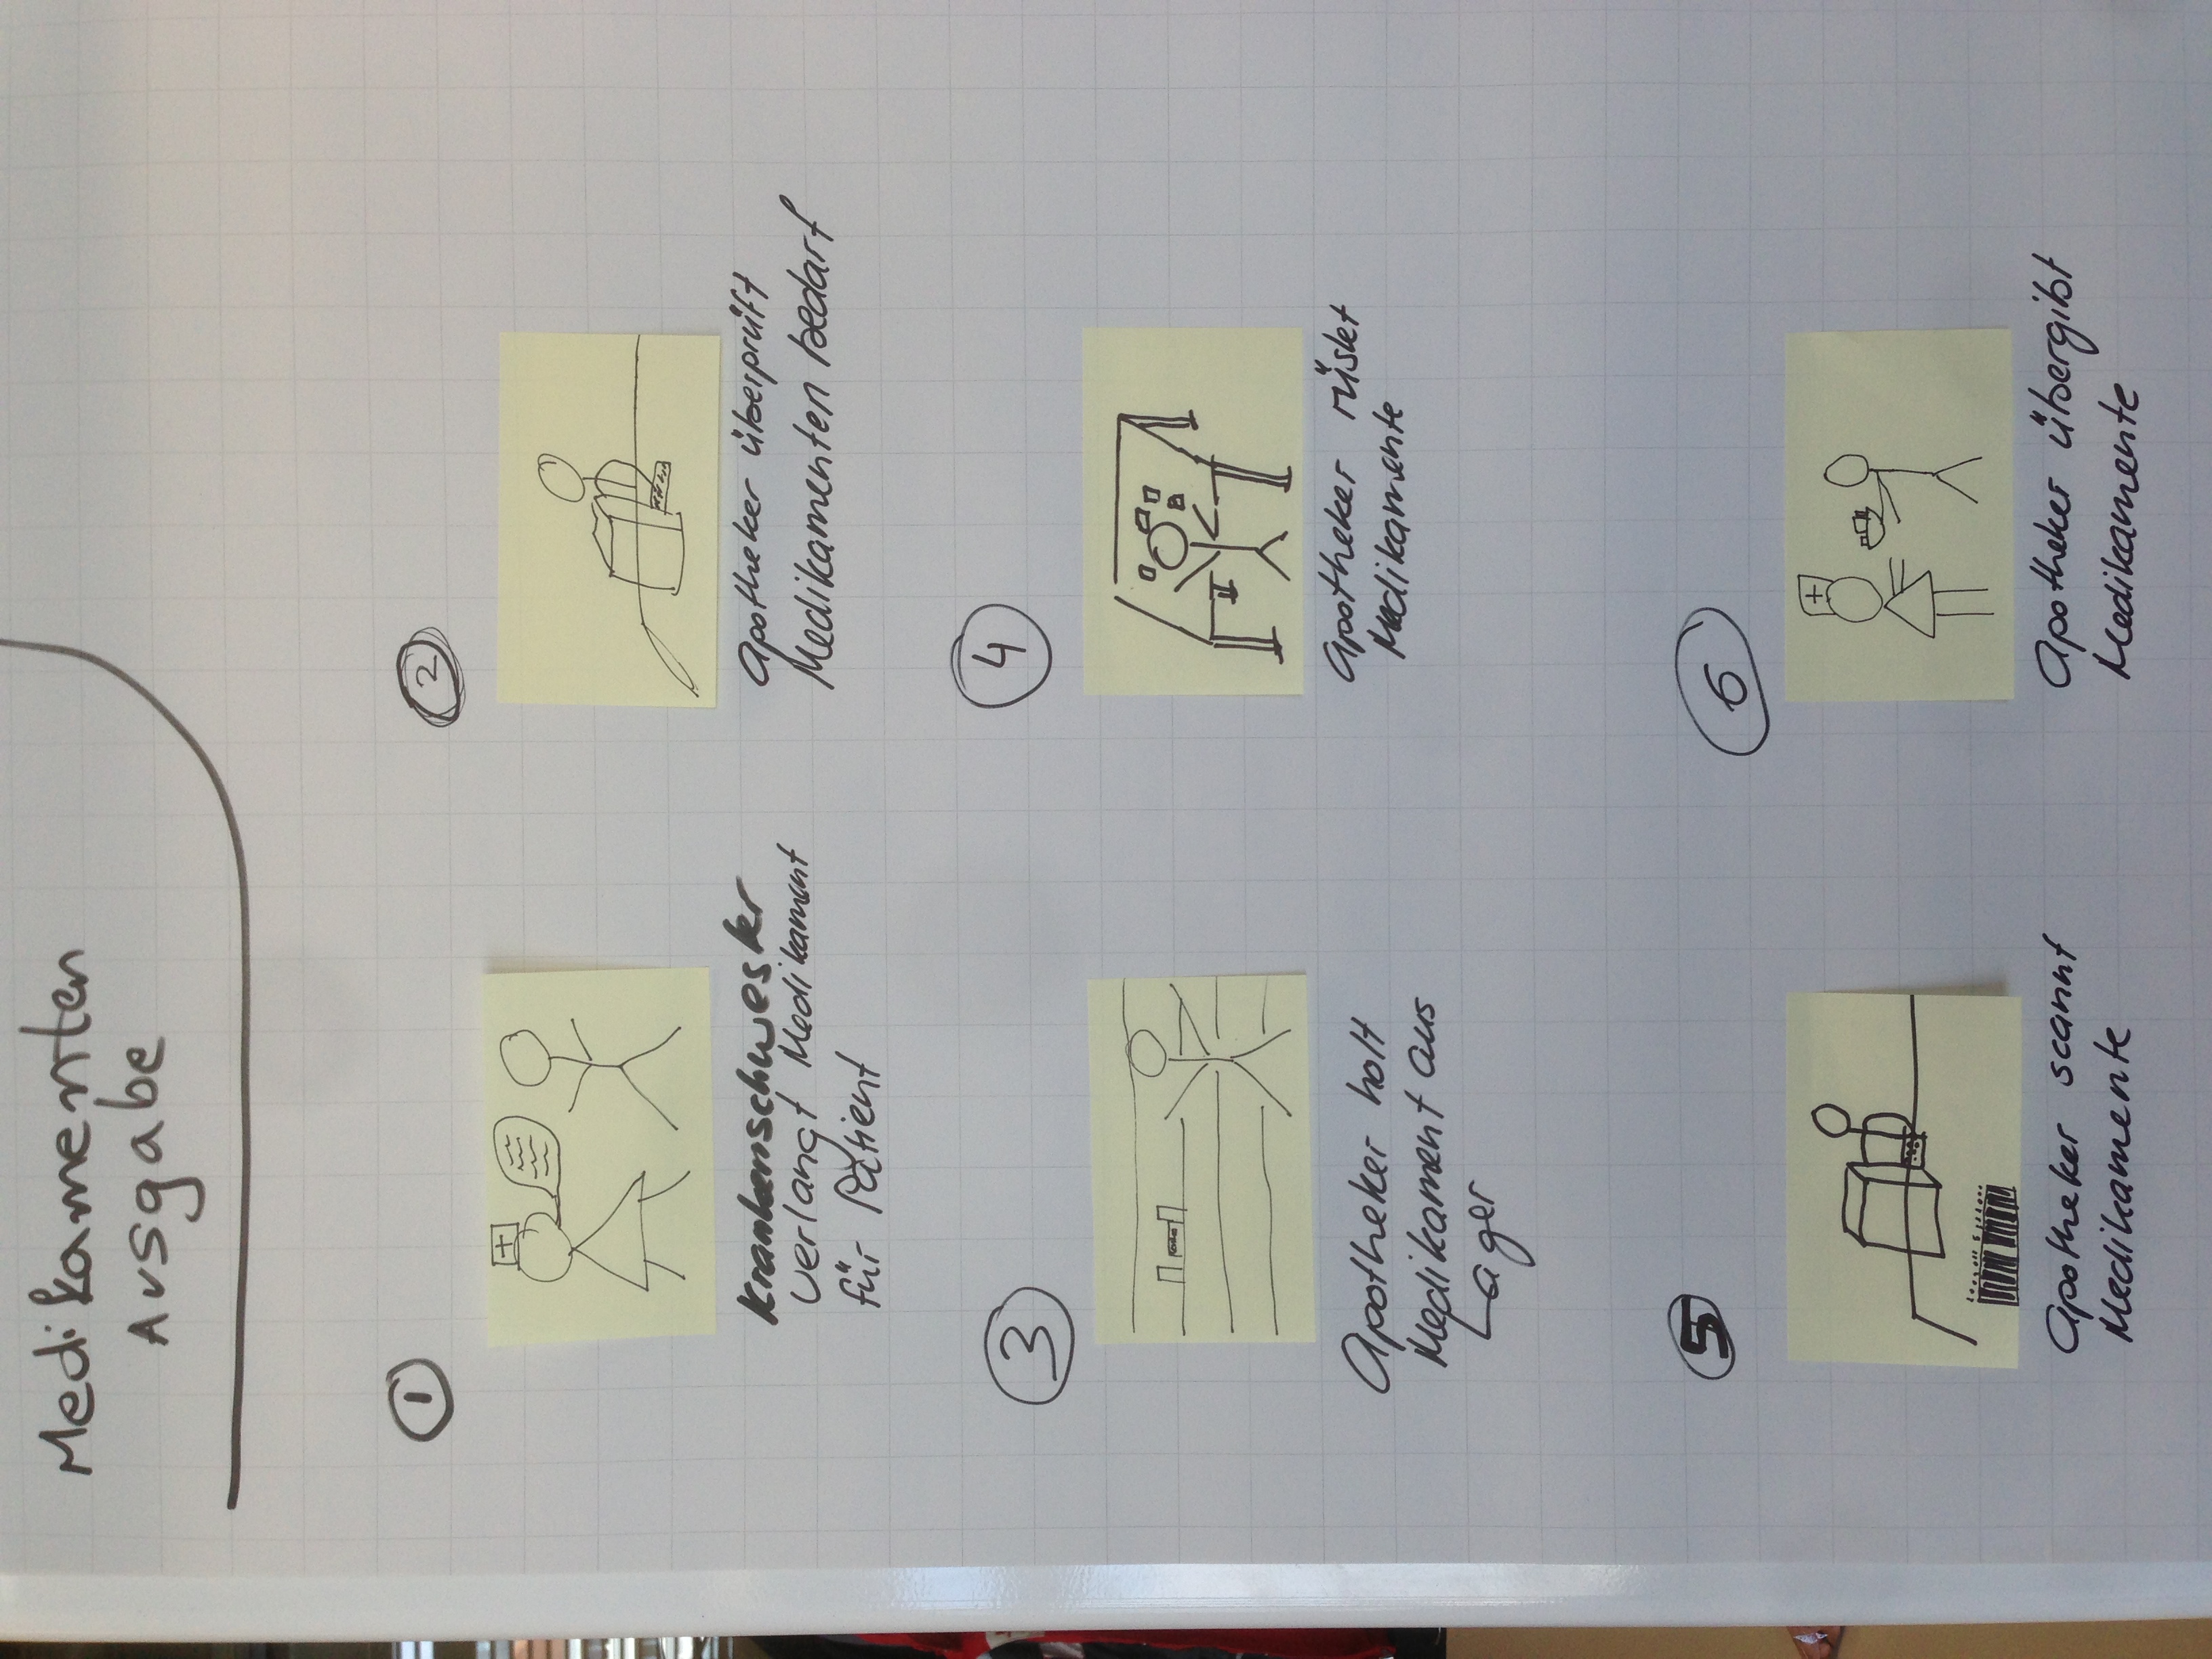 Medikamenten
Ausgabe
1
Krankenschwester
verlangt Medikament
für Patient
2
Apotheker überprüft
Medikamenten bedarf
3
Apotheker holt
Medikament aus
Lager
4
Apotheker rüstet
Medikamente
5
Apotheker scannt
Medikamente
6
Apotheker übergibt
Medikamente